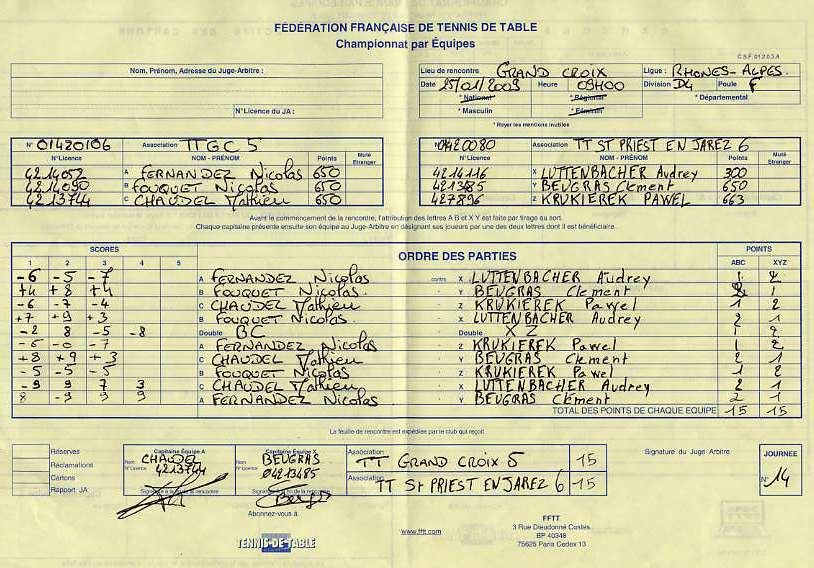 FÉDÉRATION FRANÇAISE DE TENNIS DE TABLE
Championnat par Équipes
C.S.F. 01.2.0.3.A
Nom, Prénom, Adresse du Juge-Arbitre :
N°Licence du JA :
Lieu de rencontre GRAND CROIX Ligue : RHONES-ALPES.
Date 25/01/2009 Heure 09H00 Division D4 Poule F
* National * Régional * Départemental
* Masculin * Féminin
* Rayer les mentions inutiles
N° 01420106 Association TTGC 5
N°Licence NOM - PRÉNOM Points Muté Etranger
4214052 A FERNANDEZ Nicolas 650
4214090 B FOUQUET Nicolas 650
4213744 C CHAUDEL Mathieu 650
N° 0420080 Association TT ST PRIEST EN JAREZ 6
N°Licence NOM - PRÉNOM Points Muté Etranger
4214116 X LUTTENBACHER Audrey 300
4213485 Y BEUGRAS Clement 650
427896 Z KRUKIEREK PAWEL 663
Avant le commencement de la rencontre, l'attribution des lettres A B et X Y est faite par tirage au sort.
Chaque capitaine présente ensuite son équipe au Juge-Arbitre en désignant ses joueurs par une des deux lettres dont il est bénéficiaire.
SCORES ORDRE DES PARTIES POINTS
1 2 3 4 5 ABC XYZ
-6 -5 -7 A FERNANDEZ Nicolas contre X LUTTENBACHER Audrey 1 2
+4 +8 +4 B FOUQUET Nicolas - Y BEUGRAS Clement 2 1
-6 -7 -4 C CHAUDEL Mathieu - Z KRUKIEREK Pawel 1 2
+7 +9 +3 B FOUQUET Nicolas - X LUTTENBACHER Audrey 2 1
-2 8 -5 -8 Double BC - Double XZ 1 2
-6 -0 -7 A FERNANDEZ Nicolas - Z KRUKIEREK Pawel 1 2
+8 +9 +3 C CHAUDEL Mathieu - Y BEUGRAS Clement 2 1
-5 -5 -5 B FOUQUET Nicolas - Z KRUKIEREK Pawel 1 2
-9 9 7 3 C CHAUDEL Mathieu - X LUTTENBACHER Audrey 2 1
8 -9 9 9 A FERNANDEZ Nicolas - Y BEUGRAS Clément 2 1
TOTAL DES POINTS DE CHAQUE EQUIPE 15 15
La feuille de rencontre est expédiée par le club qui reçoit
Réserves
Réclamations
Cartons
Rapport JA
Capitaine Équipe A
Nom CHAUDEL
N°Licence 4213744
Capitaine Équipe X
Nom BEUGRAS
N°Licence 04213485
Association
TT GRAND CROIX 5 15
Association
TT St PRIEST EN JAREZ 6 15
Signature du Juge Arbitre
JOURNEE
N° 14
Abonnez-vous à
TENNIS-DE-TABLE
www.fftt.com
FFTT
3 Rue Dieudonné Costes
BP 40348
75625 Paris Cedex 13